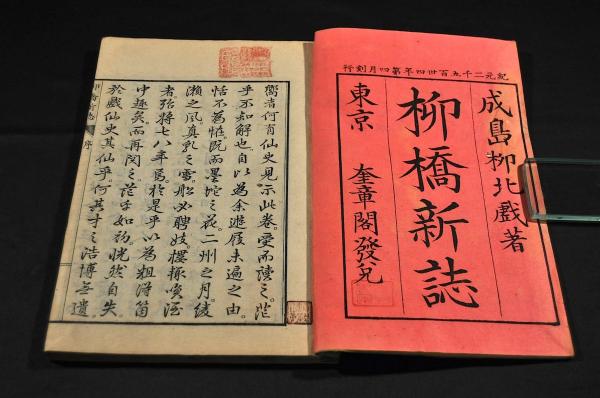 紀元二千五百卅四年第四月刻行
成島柳北戲著
柳橋新誌
東京 奎章閣發兌
嚮者何有仙史見示此卷。受而讀之。茫
乎不知解也。自以為余遊屐未遍之由。
恬不為怪。既而墨堤之花。二州之月。綾
瀨之風。真乳之雪。船必聘妓。樓喚酒
者殆將七八年焉。於是乎以為粗得箇
中趣矣。而再閱之。茫乎如初。恍然自失
於戲仙史其仙乎。何其才之浩博無遺
序